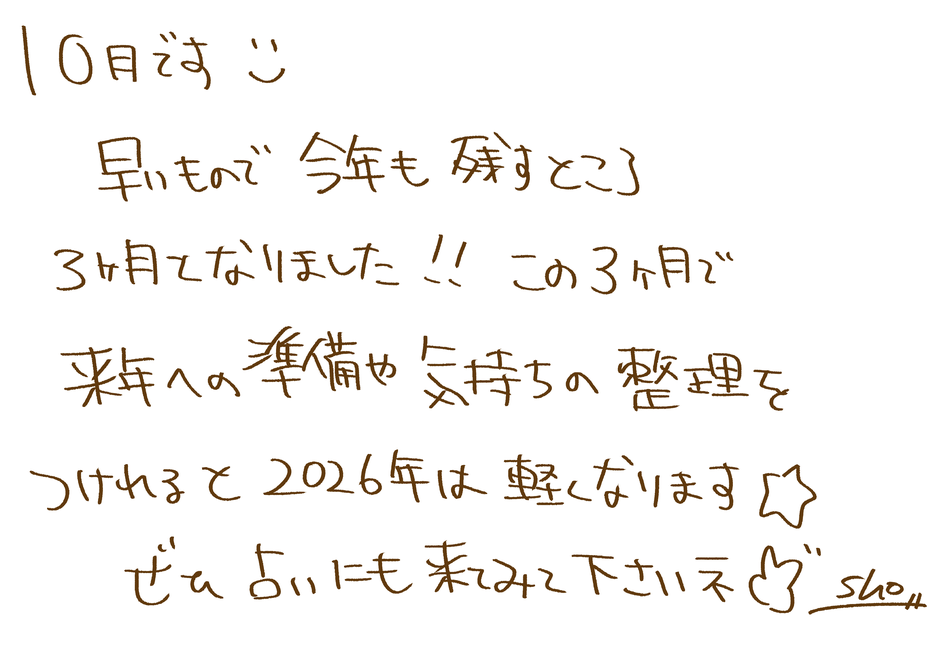 10月です
早いもので 今年も 残すところ
3ヶ月となりました!! この3ヶ月で
来年への準備や 気持ちの 整理を
つけれると 2026年は 軽くなります☆
ぜひ 占いにも 来てみて下さいネ
sho